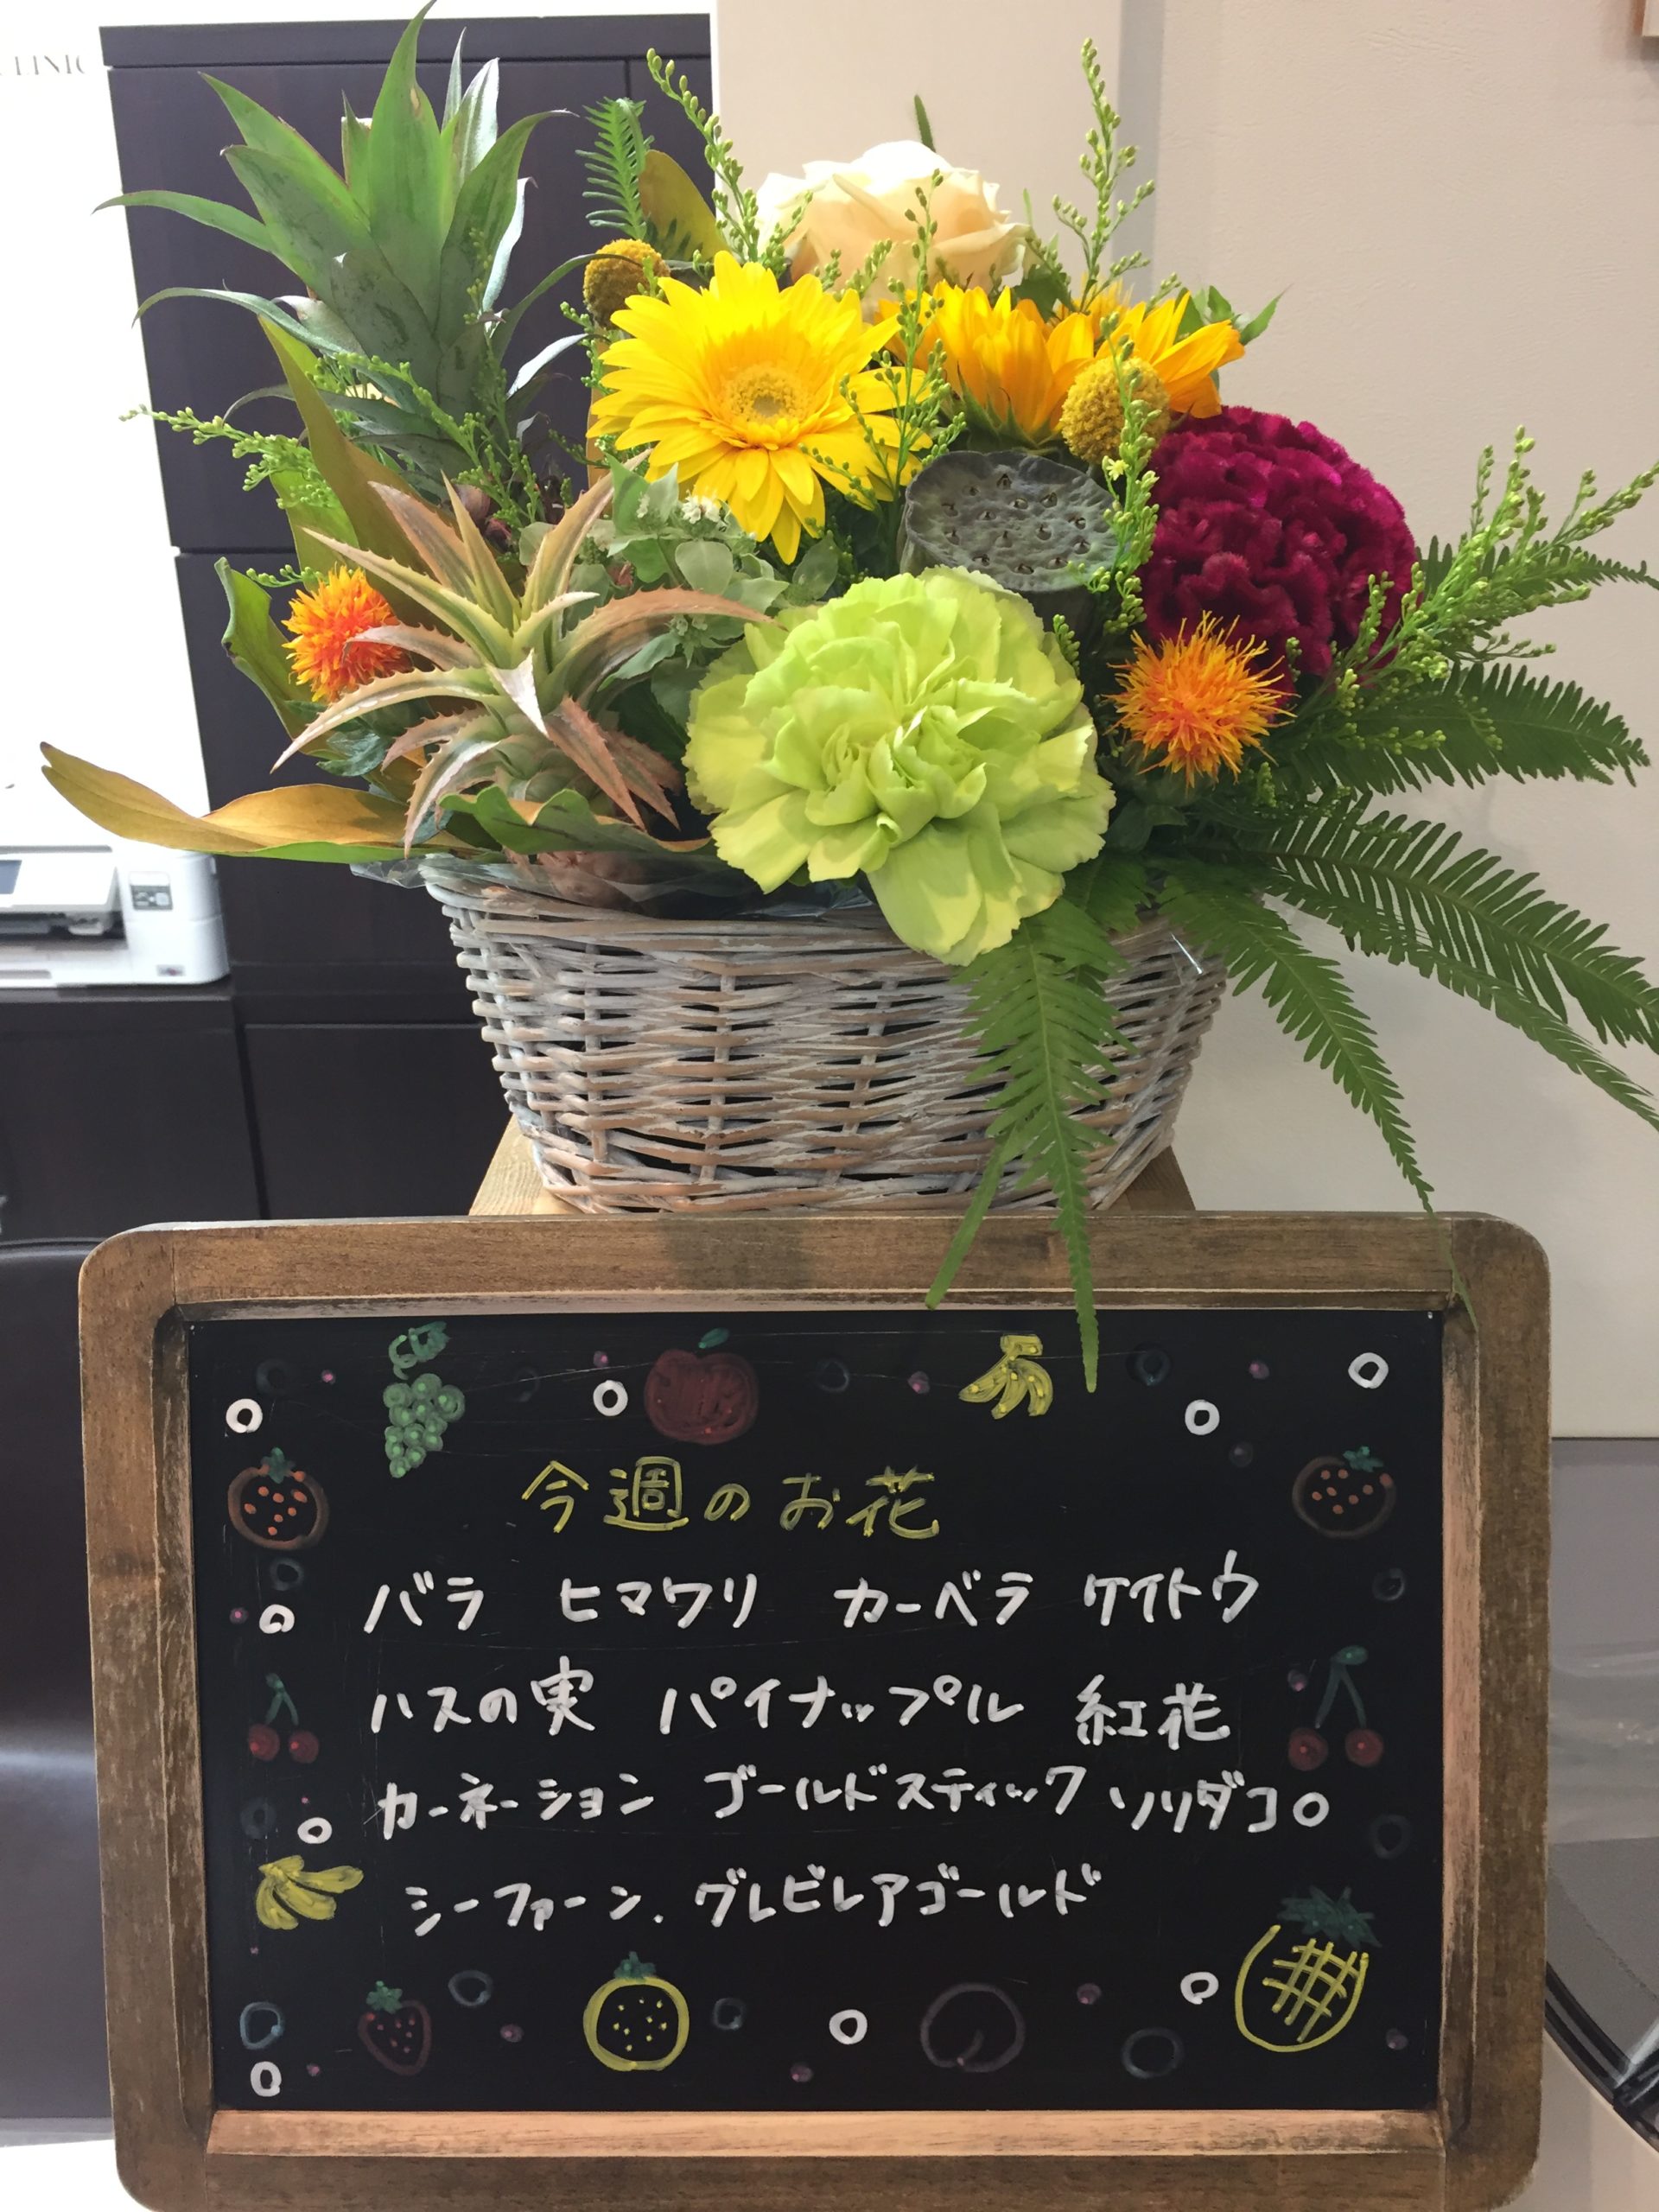 CLINIC
今週のお花
バラ ヒマワリ カーベラ ケイトウ
ハスの実 パイナップル 紅花
カーネーション ゴールドスティック ソリダコ
シーファーン. グレビレアゴールド